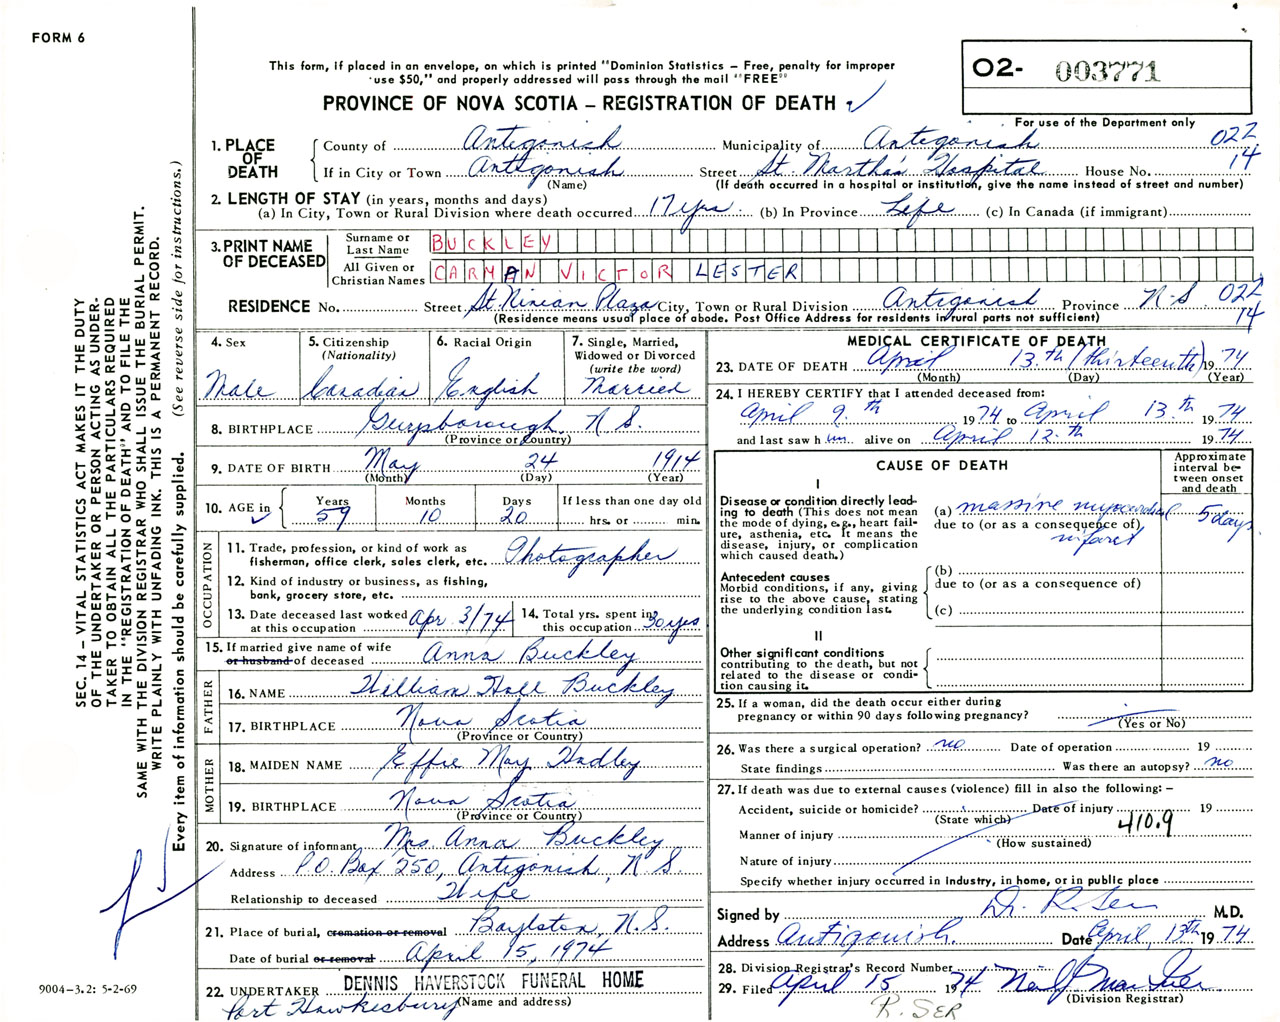 FORM 6
This form, if placed in an envelope, on which is printed "Dominion Statistics – Free, penalty for improper
use $50," and properly addressed will pass through the mail "FREE"
PROVINCE OF NOVA SCOTIA – REGISTRATION OF DEATH
02- 003771
For use of the Department only
1. PLACE OF DEATH
County of Antigonish Municipality of Antigonish 022
If in City or Town Antigonish Street St. Martha's Hospital House No. 14
(Name) (If death occurred in a hospital or institution, give the name instead of street and number)
2. LENGTH OF STAY (in years, months and days)
(a) In City, Town or Rural Division where death occurred 17 yrs. (b) In Province Life (c) In Canada (if immigrant)
3. PRINT NAME OF DECEASED
Surname or Last Name BUCKLEY
All Given or Christian Names CARMAN VICTOR LESTER
RESIDENCE No. Street St. Ninian Plaza City, Town or Rural Division Antigonish Province N.S. 022
14
(Residence means usual place of abode. Post Office Address for residents in rural parts not sufficient)
4. Sex
Male
5. Citizenship
(Nationality)
Canadian
6. Racial Origin
English
7. Single, Married,
Widowed or Divorced
(write the word)
Married
8. BIRTHPLACE Guysborough, N.S.
(Province or Country)
9. DATE OF BIRTH May 24 1914
(Month) (Day) (Year)
10. AGE in Years Months Days If less than one day old
59 10 20 hrs. or min.
OCCUPATION
11. Trade, profession, or kind of work as
fisherman, office clerk, sales clerk, etc. Photographer
12. Kind of industry or business, as fishing,
bank, grocery store, etc.
13. Date deceased last worked
at this occupation Apr 3/74
14. Total yrs. spent in
this occupation 30 yrs
15. If married give name of wife
or husband of deceased Anna Buckley
FATHER
16. NAME William Hall Buckley
17. BIRTHPLACE Nova Scotia
(Province or Country)
MOTHER
18. MAIDEN NAME Effie May Hadley
19. BIRTHPLACE Nova Scotia
(Province or Country)
20. Signature of informant Mrs. Anna Buckley
Address P.O. Box 250, Antigonish, N.S.
Relationship to deceased Wife
21. Place of burial, cremation or removal Boylston, N.S.
Date of burial or removal April 15, 1974
22. UNDERTAKER DENNIS HAVERSTOCK FUNERAL HOME
Port Hawkesbury (Name and address)
MEDICAL CERTIFICATE OF DEATH
23. DATE OF DEATH April 13.th (thirteenth) 1974
(Month) (Day) (Year)
24. I HEREBY CERTIFY that I attended deceased from:
April 9.th 1974 to April 13.th 1974
and last saw him alive on April 12.th 1974
CAUSE OF DEATH
Approximate
interval be-
tween onset
and death
I
Disease or condition directly lead-
ing to death (This does not mean
the mode of dying, e.g., heart fail-
ure, asthenia, etc. It means the
disease, injury, or complication
which caused death.)
(a) massive myocardial 5 days
due to (or as a consequence of)
infarct
Antecedent causes
Morbid conditions, if any, giving
rise to the above cause, stating
the underlying condition last.
(b)
due to (or as a consequence of)
(c)
II
Other significant conditions
contributing to the death, but not
related to the disease or condi-
tion causing it.
25. If a woman, did the death occur either during
pregnancy or within 90 days following pregnancy?
(Yes or No)
26. Was there a surgical operation? no Date of operation 19
State findings Was there an autopsy? no
27. If death was due to external causes (violence) fill in also the following: –
Accident, suicide or homicide? Date of injury 19
(State which)
410.9
Manner of injury
(How sustained)
Nature of injury
Specify whether injury occurred in industry, in home, or in public place
Signed by Dr. R. Sen M.D.
Address Antigonish. Date April, 13th 1974
28. Division Registrar's Record Number
29. Filed April 15 1974
(Division Registrar)
R. SER
SEC. 14 – VITAL STATISTICS ACT MAKES IT THE DUTY
OF THE UNDERTAKER OR PERSON ACTING AS UNDER-
TAKER TO OBTAIN ALL THE PARTICULARS REQUIRED
IN THE "REGISTRATION OF DEATH" AND TO FILE THE
SAME WITH THE DIVISION REGISTRAR WHO SHALL ISSUE THE BURIAL PERMIT.
WRITE PLAINLY WITH UNFADING INK. THIS IS A PERMANENT RECORD.
Every item of information should be carefully supplied. (See reverse side for instructions.)
9004–3.2: 5-2-69